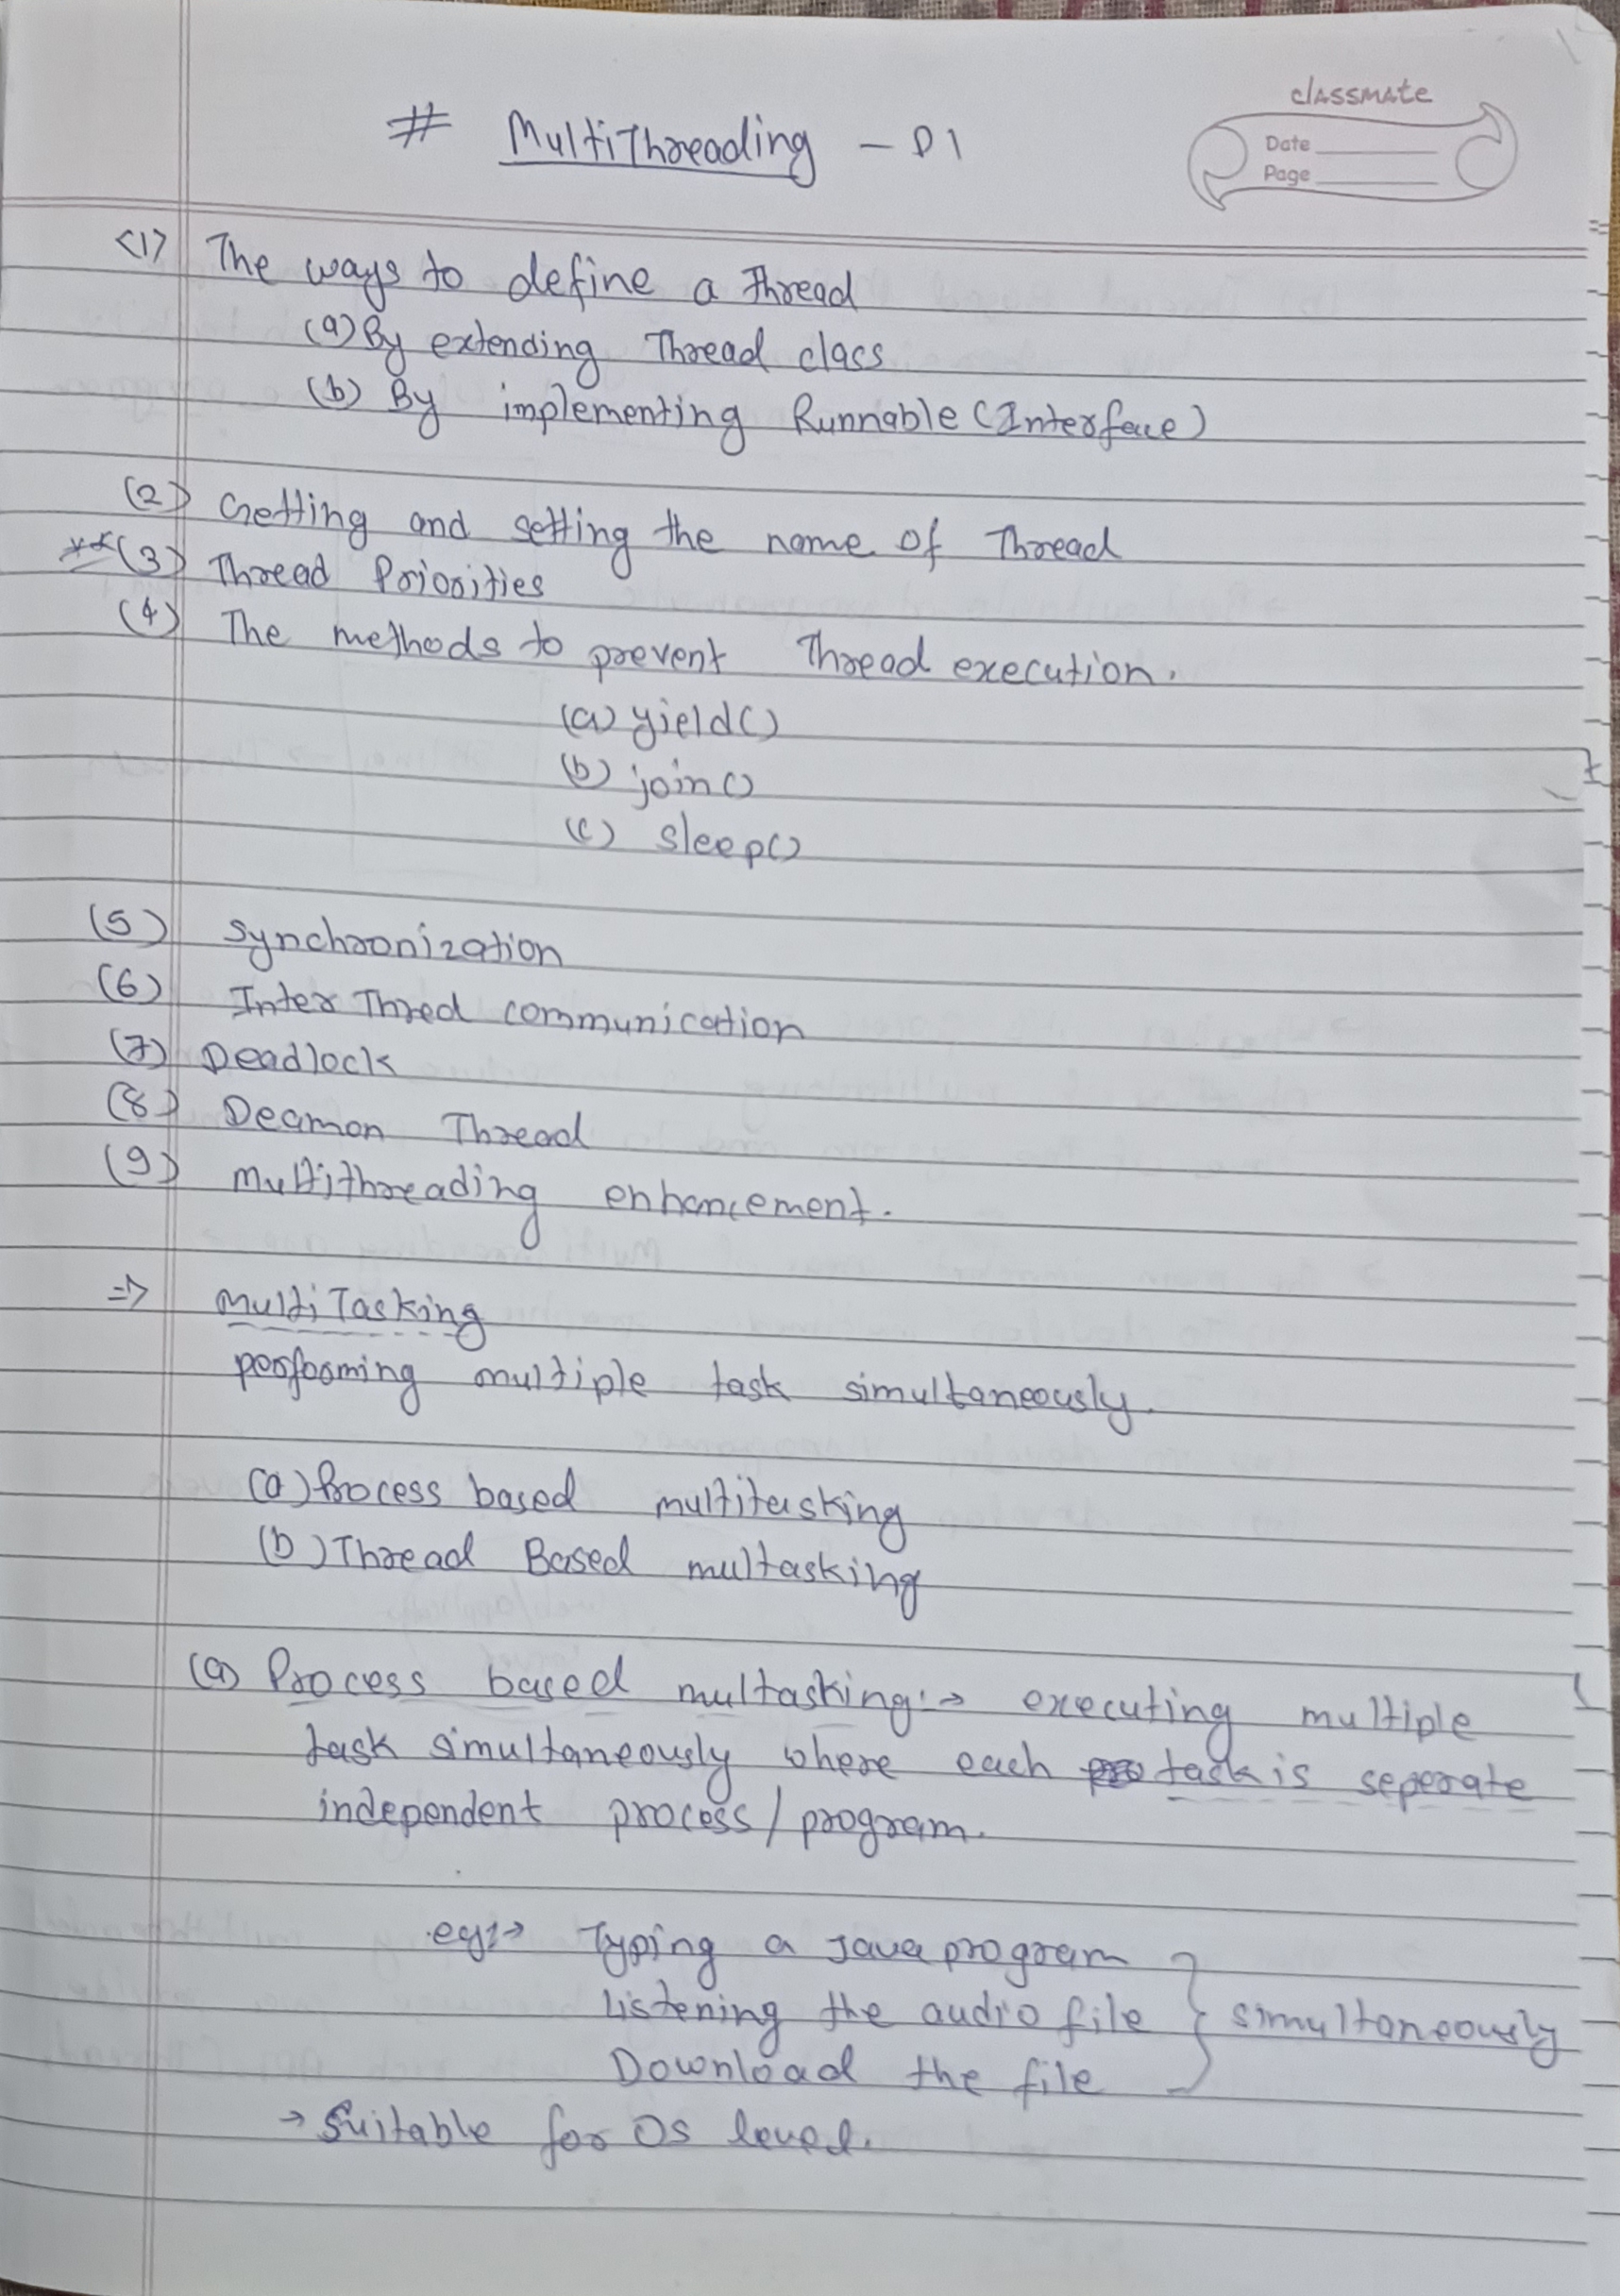 classmate
Date
Page
# MultiThreading - D1
<1> The ways to define a Thread
(a) By extending Thread class
(b) By implementing Runnable (Interface)
(2) Getting and setting the name of Thread
**(3) Thread Priorities
(4) The methods to prevent Thread execution.
(a) yield()
(b) join()
(c) sleep()
(5) Synchronization
(6) Inter Thred communication
(7) Deadlock
(8) Deamon Thread
(9) multithreading enhancement.
=> multi Tasking
performing multiple task simultaneously.
(a) Process based multitasking
(b) Thread Based multasking
(a) Process based multasking:→ executing multiple
task simultaneously where each task is seperate
independent process/program.
eg:→ Typing a Java program
Listening the audio file } simultaneously
Download the file
→ Suitable for OS level.